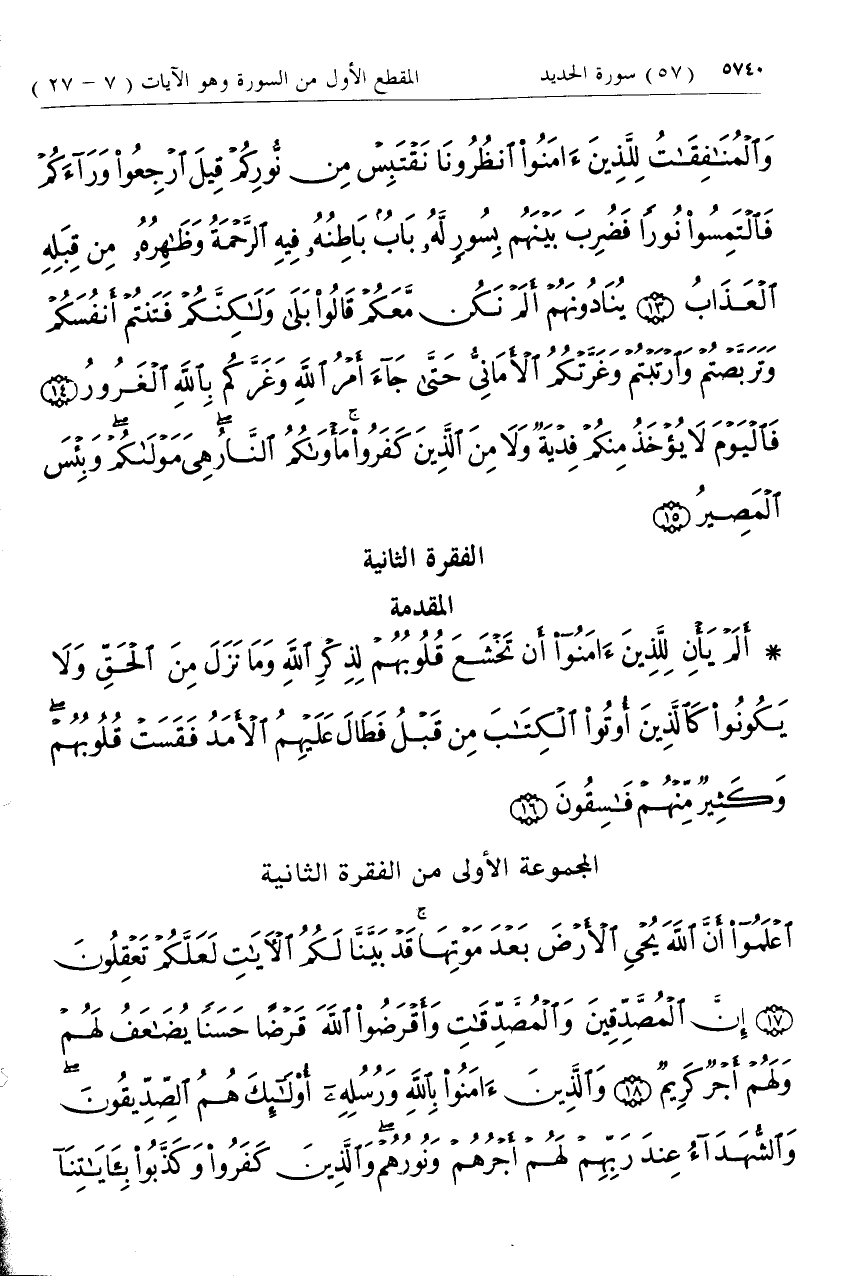 ٥٧٤٠ (٥٧) سورة الحديد المقطع الأول من السورة وهو الآيات ( ٧ – ٢٧ )
وَٱلْمُنَـٰفِقَـٰتُ لِلَّذِينَ ءَامَنُوا۟ ٱنظُرُونَا نَقْتَبِسْ مِن نُّورِكُمْ قِيلَ ٱرْجِعُوا۟ وَرَآءَكُمْ
فَٱلْتَمِسُوا۟ نُورًا فَضُرِبَ بَيْنَهُم بِسُورٍ لَّهُۥ بَابٌۢ بَاطِنُهُۥ فِيهِ ٱلرَّحْمَةُ وَظَـٰهِرُهُۥ مِن قِبَلِهِ
ٱلْعَذَابُ ﴿١٣﴾ يُنَادُونَهُمْ أَلَمْ نَكُن مَّعَكُمْ قَالُوا۟ بَلَىٰ وَلَـٰكِنَّكُمْ فَتَنتُمْ أَنفُسَكُمْ
وَتَرَبَّصْتُمْ وَٱرْتَبْتُمْ وَغَرَّتْكُمُ ٱلْأَمَانِىُّ حَتَّىٰ جَآءَ أَمْرُ ٱللَّهِ وَغَرَّكُم بِٱللَّهِ ٱلْغَرُورُ ﴿١٤﴾
فَٱلْيَوْمَ لَا يُؤْخَذُ مِنكُمْ فِدْيَةٌ وَلَا مِنَ ٱلَّذِينَ كَفَرُوا۟ ۚ مَأْوَىٰكُمُ ٱلنَّارُ ۖ هِىَ مَوْلَىٰكُمْ ۖ وَبِئْسَ
ٱلْمَصِيرُ ﴿١٥﴾
الفقرة الثانية
المقدمة
* أَلَمْ يَأْنِ لِلَّذِينَ ءَامَنُوٓا۟ أَن تَخْشَعَ قُلُوبُهُمْ لِذِكْرِ ٱللَّهِ وَمَا نَزَلَ مِنَ ٱلْحَقِّ وَلَا
يَكُونُوا۟ كَٱلَّذِينَ أُوتُوا۟ ٱلْكِتَـٰبَ مِن قَبْلُ فَطَالَ عَلَيْهِمُ ٱلْأَمَدُ فَقَسَتْ قُلُوبُهُمْ ۖ
وَكَثِيرٌ مِّنْهُمْ فَـٰسِقُونَ ﴿١٦﴾
المجموعة الأولى من الفقرة الثانية
ٱعْلَمُوٓا۟ أَنَّ ٱللَّهَ يُحْىِ ٱلْأَرْضَ بَعْدَ مَوْتِهَا ۚ قَدْ بَيَّنَّا لَكُمُ ٱلْـَٔايَـٰتِ لَعَلَّكُمْ تَعْقِلُونَ
﴿١٧﴾ إِنَّ ٱلْمُصَّدِّقِينَ وَٱلْمُصَّدِّقَـٰتِ وَأَقْرَضُوا۟ ٱللَّهَ قَرْضًا حَسَنًا يُضَـٰعَفُ لَهُمْ
وَلَهُمْ أَجْرٌ كَرِيمٌ ﴿١٨﴾ وَٱلَّذِينَ ءَامَنُوا۟ بِٱللَّهِ وَرُسُلِهِۦٓ أُو۟لَـٰٓئِكَ هُمُ ٱلصِّدِّيقُونَ ۖ
وَٱلشُّهَدَآءُ عِندَ رَبِّهِمْ لَهُمْ أَجْرُهُمْ وَنُورُهُمْ ۖ وَٱلَّذِينَ كَفَرُوا۟ وَكَذَّبُوا۟ بِـَٔايَـٰتِنَآ